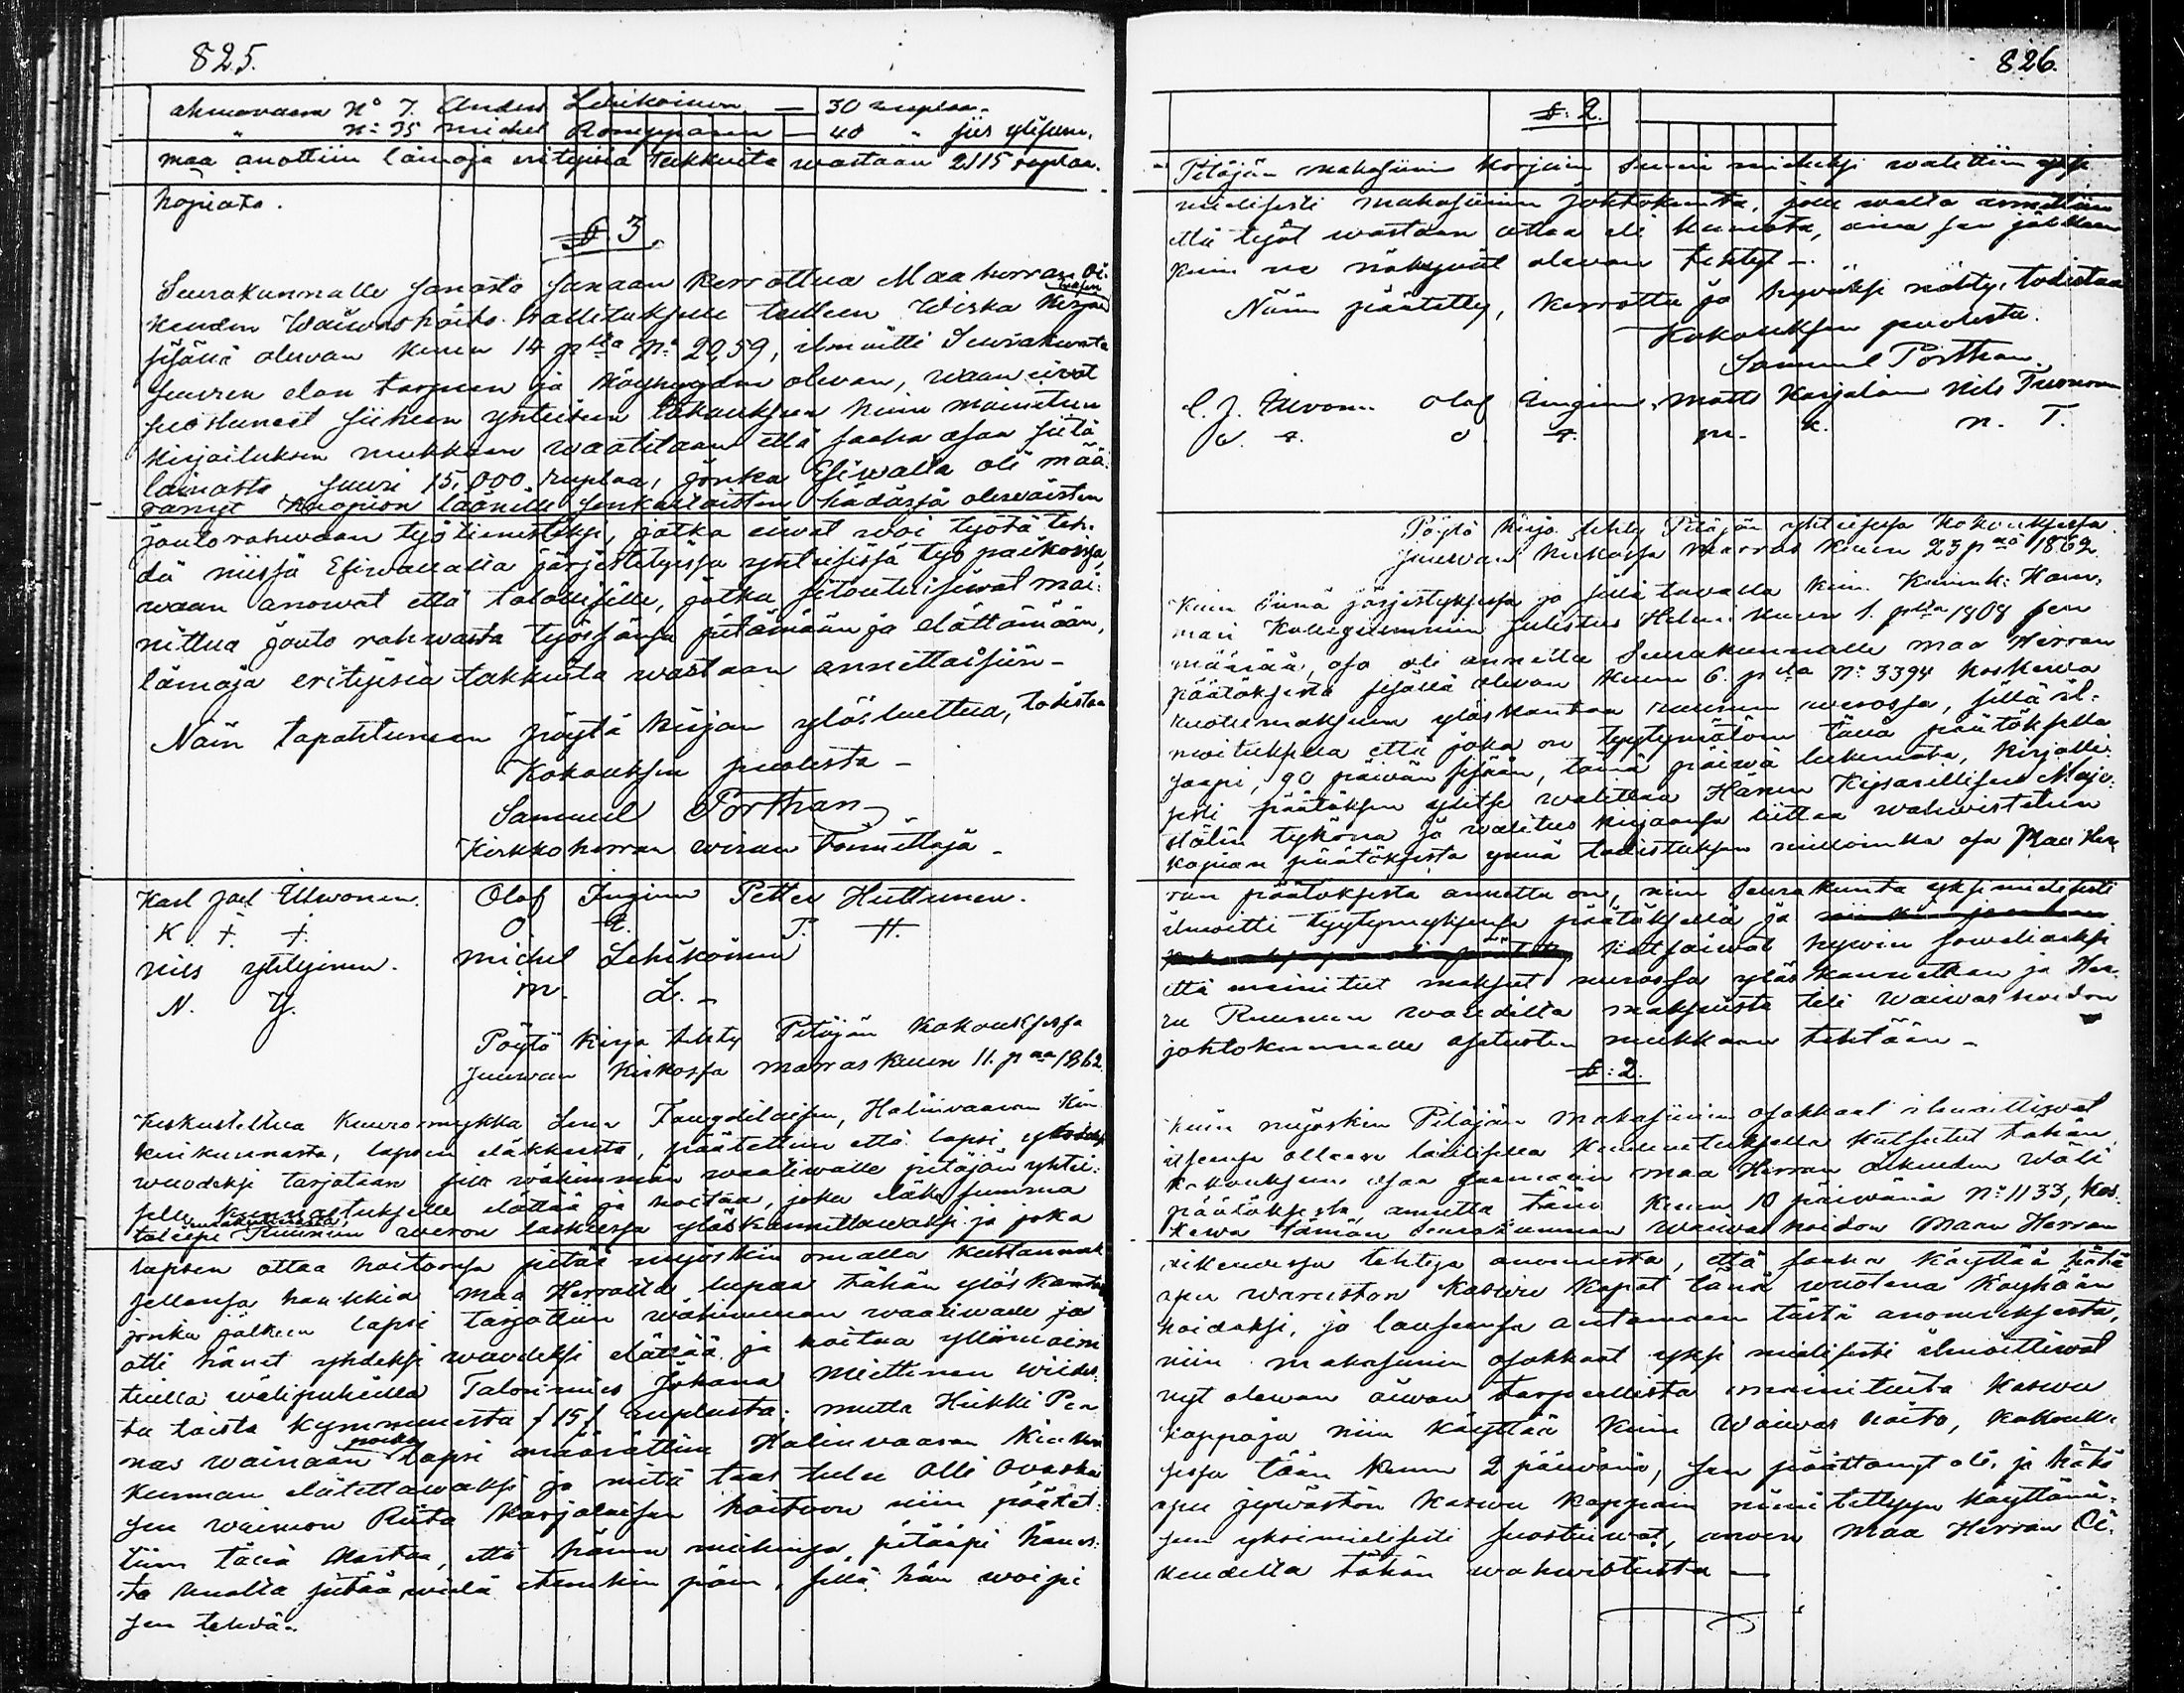 825.
ahmovaara N° 7. Anders Lehikoinen — 30 ruplaa.
" N: 35 Michel Romppanen — 40 " jiis ylihsen,
maa anottiin lainoja erityisiä takkuita wastaan 2115 ruplaa.
hopiata.
§. 3.
Seurakunnalle sanasta sanaan kerrottua Maaherran Oi-
keuden Waiwashoito hallituksen tulleen Wirka kirjan
sisällä olewan kuun 14 p:ltä N: 2959, ilmoitti Seurakunta
suuren elon tarpeen ja köyhyyden olewan, waan eiwät
suostuneet siihen yhteiseen takaukseen kuin mainitun
kirjoituksen mukkaan waaditaan että saaha osaa siitä
lainasta, suuri 15,000 ruplaa, jonka Esiwalta oli mää-
rännyt Kuopion läänille senkaltaisten hädässä olewaisten
joutorahwaan työtiennesteksi, jotka eiwät woi työtä teh-
dä niissä Esiwallalta järjestetyissä yhteisissä työ paikoissa,
waan anowat että talollisille, jotka sitoutuisiwat mai-
nittua jouto rahwasta työssänsä pitämään ja elättämään,
lainoja erityisiä takkuita wastaan annettaisiin –
Näin tapahtuneen pöytä kirjan ylösluettua, todistaa
Kokouksen puolesta –
Samuel Porthan
Kirkkoherran wiran Toimittaja –
Karl Joel Ukwonen. Olof Inginen Petter Huttunen.
K. I. U. O. I. P. H.
Nils Ytilyinen. Michel Lehikoinen
N. Y. M. L. –
Pöytä kirja tehty Pitäjän kokouksessa
Juuwan kirkossa marraskuun 11. p:nä 1862.
Keskusteltua Kuuromykkä Lena Tangdilaisen, Halinvaaran Kin-
kerikunnasta, lapsen eläkkeestä, päätettiin että lapsi yhdeksi
wuodeksi tarjotaan sille wähimmän waatiwalle pitäjän yhtei-
selle kunnostukselle elättää ja hoitaa, joka eläke summa
maakunnasta,
tuleepi Ruunun weron laskussa ylöskannettawaksi ja joka
lapsen ottaa hoitoonsa pitää myöskin omalla kustannuk-
sellansa hankkia maa Herralta lupaa tähän ylös kantoon
jonka jälkeen lapsi tarjottiin wähimmän waatiwalle ja
otti hänet yhdeksi wuodeksi elättää ja hoitaa yllämaini-
tuilla wälipuheilla Talonmies Johana Miettinen wiides-
tä toista kymmenestä f 15 f ruplasta; mutta Heikki Pen-
nas wainaan poika lapsi määrättiin Halinvaaran Kinkeri
kunnan elätettäwäksi ja mitä taas tulee Olli Ovaska-
sen waimon Riita Karjalaisen hoitoon niin päätet-
tiin tällä kertaa, että hänen miehensä pitääpi hänes-
tä huolta pitää wielä etemmin päin, sillä hän woipi
sen tehdä.
826.
§: 2.
Pitäjän makasiinin korjuun suuri mieheksi walittiin yksi
mielisesti makasiinin johtokunta, jolle walta annettiin
että työt wastaan ottaa eli kumota, aina sen jälkeen
kuin ne näkyiwät olewan tehdyt –
Näin päätetty, kerrottu ja hyväksi nähty, todistaa
Kokouksen puolesta.
Samuel Porthan
C. J. Ukvonen Olof Inginen, Matts Karjalain Nils Turunen
C. I. O. I. M. K. N. T.
Pöytä kirja tehty Pitäjän yhteisessä kokouksessa
Juuwan kirkossa marras kuun 23 p:nä 1862.
Kuin siinä järjestyksessä ja sillä tawalla kuin Keisrill: Kam-
mari Kollegiummin julistus Helmi kuun 1. p:ltä 1808 sen
määrää, osa oli annettu Seurakunnalle maa Herran
päätöksestä sisällä olewan kuun 6. p:ltä N: 3394 koskewa
kuolemaksuun ylöskantaa ruunun werossa, sillä il-
moituksella että joka on tyytymätöin tähän päätöksellä
saapi, 90 päiwän sisään, tämä päiwä lukematta, kirjalli-
sesti päätöksen ylitse walittaa Hänen Keisarillisen Maje-
stätin tykönä ja walitus kirjaansa liittää wahwistetun
kopian päätöksestä ynnä todistuksen milloinka osa Maa Her-
ran päätöksestä annettu on, niin Seurakunta yksimielisesti
ilmoitti tyytymyksensä päätöksellä ja
katsoiwat hywin soweliaaksi
että mainitut maksut werossa ylös kannetaan ja Her-
ra Ruunun woudilta maksuista tili Waiwashoidon
johtokunnalle asetusten mukkaan tehtään –
§: 2.
Kuin myöskin Pitäjän Makasiinin osakkaat ilmoittiwat
itsensä olleen laillisella kuulutuksella kutsutut tähän
kokoukseen osaa saamaan maa Herran oikeuden Wäli
päätöksestä annettu tään kuun 10 päiwänä N: 1133, kos-
kewa tämän Seurakunnan waiwas hoidon Maan Herran
oikeudessa tehtyä anomusta, että saaha käyttää hätä
apu waruston kaswu kapat tänä wuotena Köyhäin
hoidoksi, ja lauseensa antamaan tästä anomuksesta,
niin makasiinin osakkaat yksi mielisesti ilmoittiwat
nyt olewan aiwan tarpeellista mainituita kaswu
kappoja niin käyttää kuin Waiwas hoito, kokouk-
sessa tään kuun 2 päiwänä, sen päättänyt oli, ja hätä
apu jywästön kaswu kappain nimitettyyn käyttämi-
seen yksimielisesti suostuiwat, anoen maa Herran Oi-
keudelta tähän wahwistusta —